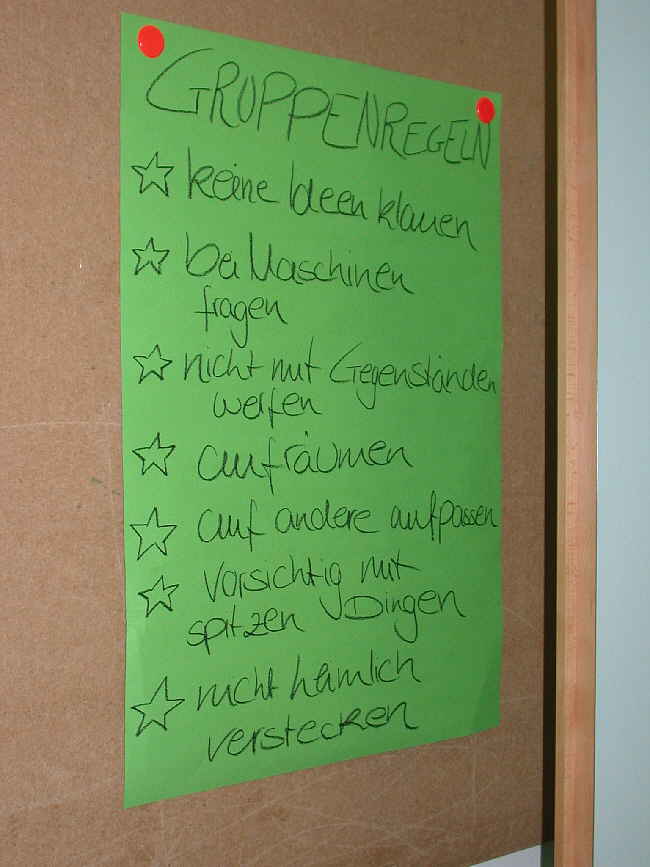 GRUPPENREGELN
keine Ideen klauen
bei Maschinen
fragen
nicht mit Gegenständen
werfen
aufräumen
auf andere aufpassen
Vorsichtig mit
spitzen Dingen
nicht heimlich
verstecken